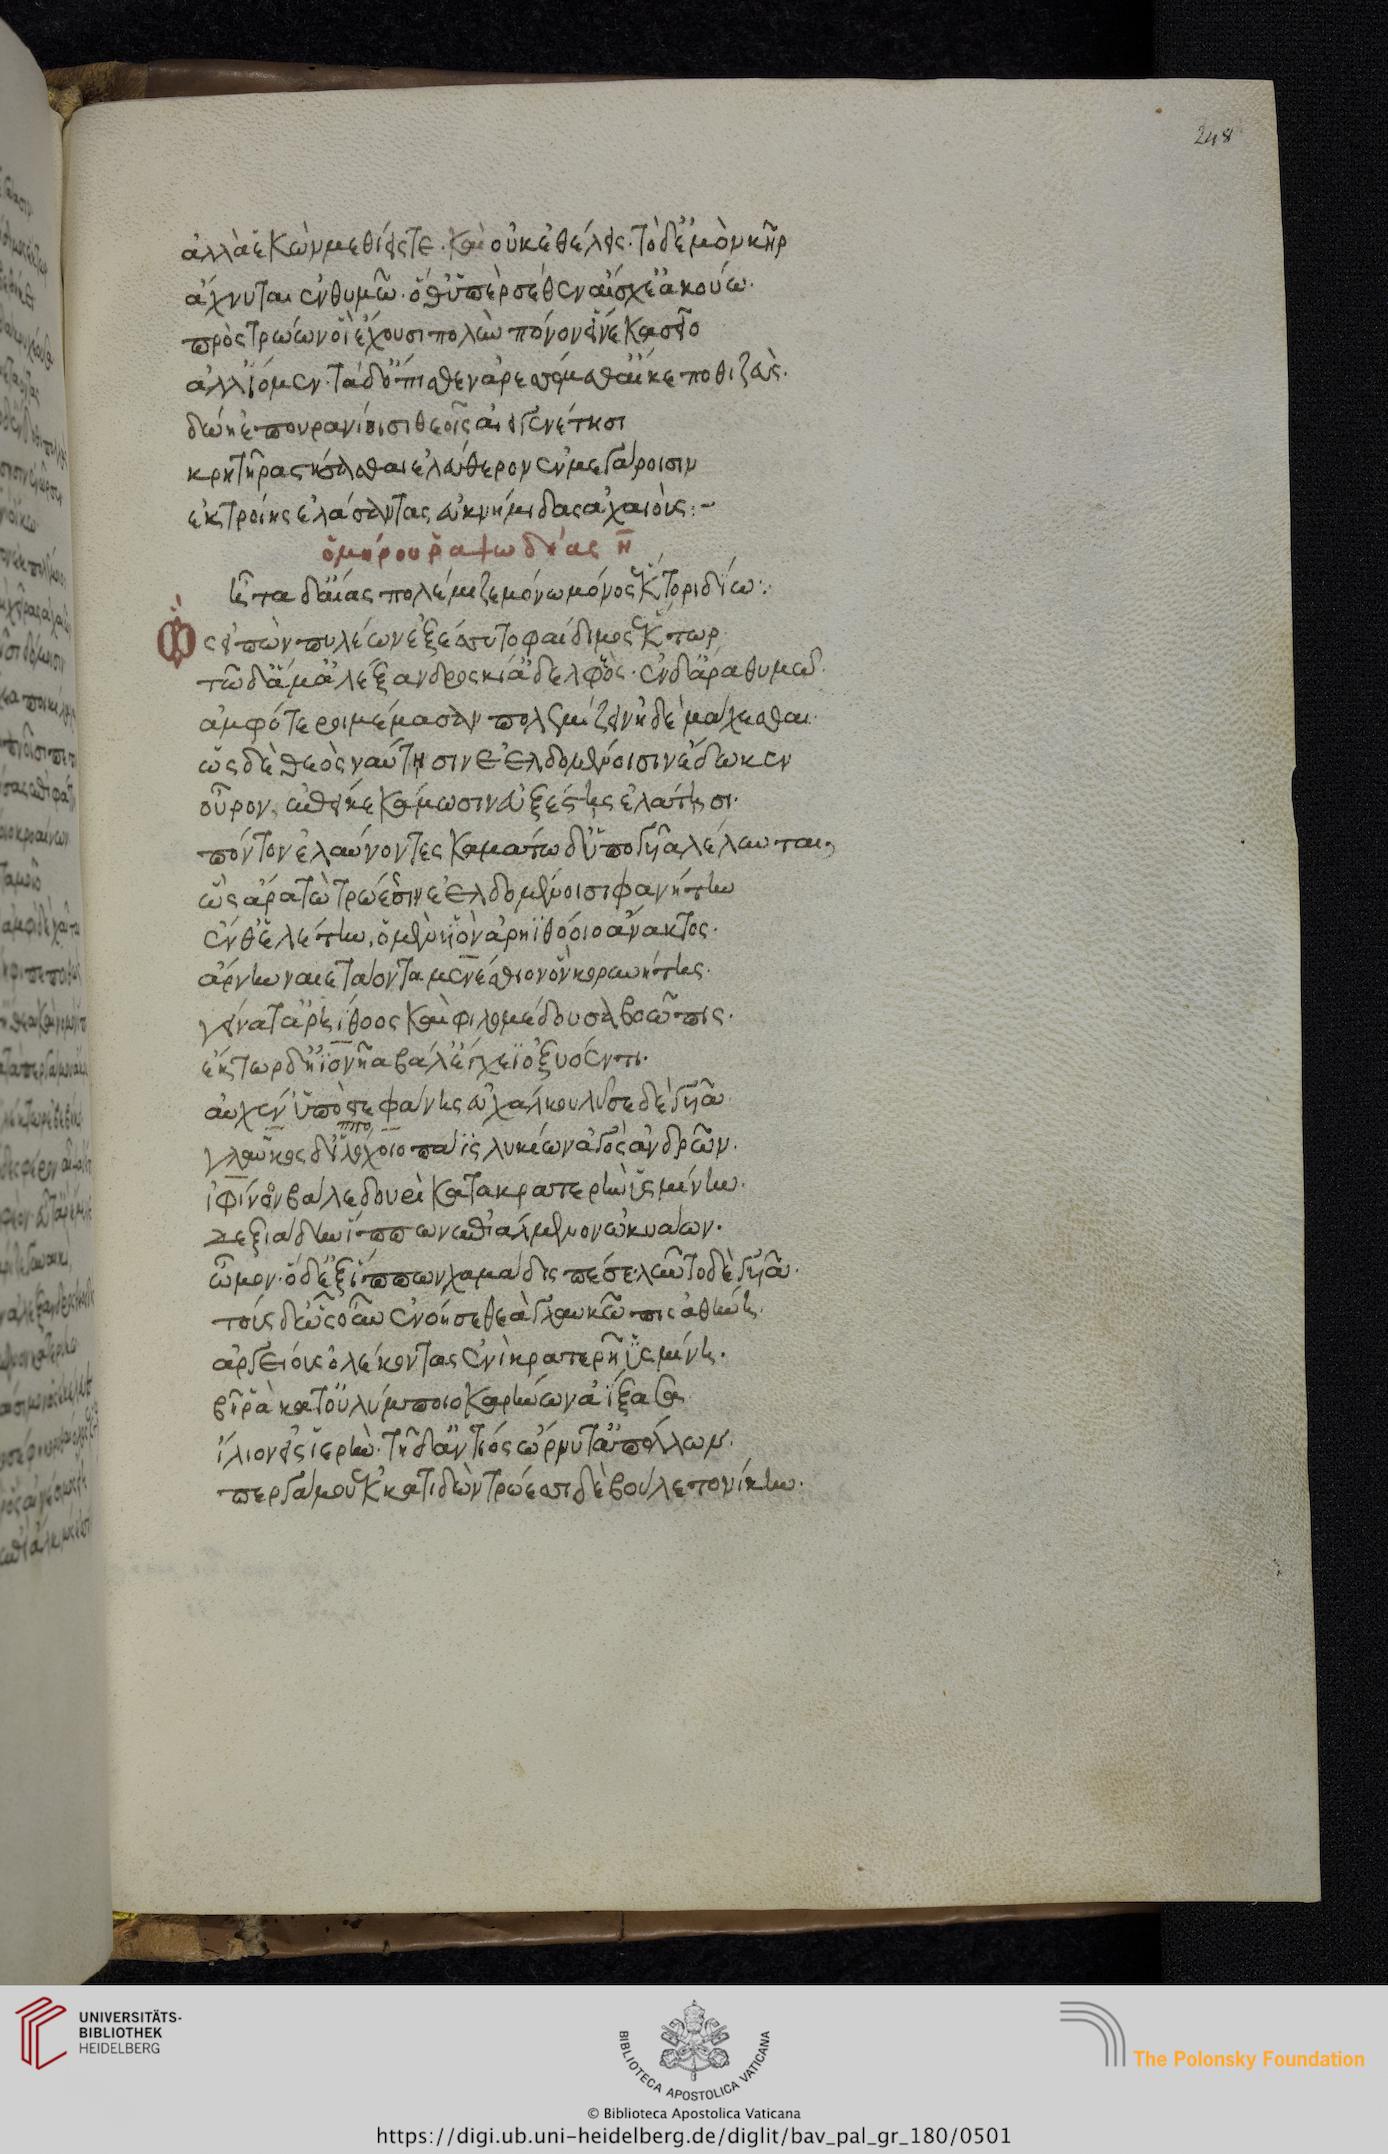 248
ἀλλὰ ἑκὼν μεθίεις τε καὶ οὐκ ἐθέλεις· τὸ δ' ἐμὸν κῆρ
ἄχνυται ἐν θυμῶ· ὅθ' ὑπὲρ σέθεν αἴσχε' ἀκούω·
πρὸς τρώων οἳ ἔχουσι πολὺν πόνον εἵνεκα σεῖο
ἀλλ' ἴομεν· τὰ δ' ὄπισθεν ἀρεσσόμεθ' αἴ κέ ποθι ζεὺς·
δώῃ ἐπουρανίοισι θεοῖς αἰειγενέτῃσι
κρητῆρα στήσασθαι ἐλεύθερον ἐν μεγάροισιν
ἐκ τροίης ἐλάσαντας ἐυκνήμιδας ἀχαιούς:~
ὁμήρου ῥαψωδίας η
ῆτα δ' αἴας πολέμιζε μόνω μόνος ἕκτορι δίω:
Ὣς εἰπὼν πυλέων ἐξέσσυτο φαίδιμος ἕκτωρ
τῶ δ' ἅμ' ἀλέξανδρος κί' ἀδελφεὸς· ἐν δ' ἄρα θυμῶ
ἀμφότεροι μέμασαν πολεμίζειν ἠδὲ μάχεσθαι·
ὡς δὲ θεὸς ναύτῃσιν ἐελδομένοισιν ἔδωκεν
οὖρον, ἐπεί κε κάμωσιν ἐυξέστῃς ἐλάτῃσι·
πόντον ἐλαύνοντες καμάτω δ' ὑπὸ γυῖα λέλυνται,
ὣς ἄρα τὼ τρώεσσιν ἐελδομένοισι φανήτην
ἔνθ' ἑλέτην, ὁ μὲν υἱὸν ἀρηϊθόοιο ἄνακτος·
ἄρνῃ ναιετάοντα μενέσθιον ὃν κορυνήτης·
γείνατ' ἀρηΐθοος καὶ φιλομέδουσα βοῶπις·
ἕκτωρ δ' ἠϊονῆα βάλ' ἔγχεϊ ὀξυόεντι·
αὐχέν' ὑπὸ στεφάνης ἐυχάλκου λῦσε δὲ γυῖα
γλαῦκος δ' ἱππολόχοιο πάϊς λυκίων ἀγὸς ἀνδρῶν·
ἰφίνοον βάλε δουρὶ κατὰ κρατερὴν ὑσμίνην·
δεξιάδην ἵππων ἐπιάλμενον ὠκειάων·
ὦμον· ὁ δ' ἐξ ἵππων χαμάδις πέσε· λῦντο δὲ γυῖα·
τοὺς δ' ὡς οὖν ἐνόησε θεὰ γλαυκῶπις ἀθήνη·
ἀργείους ὀλέκοντας ἐνὶ κρατερῇ ὑσμίνῃ·
βῆ ῥα κατ' οὐλύμποιο καρήνων ἀΐξασα
ἴλιον εἰς ἱερὴν· τῇ δ' ἀντίος ὤρνυτ' ἀπόλλων·
περγάμου ἐκκατιδὼν τρώεσσι δὲ βούλετο νίκην·
UNIVERSITÄTS-
BIBLIOTHEK
HEIDELBERG
BIBLIOTECA APOSTOLICA VATICANA
The Polonsky Foundation
© Biblioteca Apostolica Vaticana
https://digi.ub.uni-heidelberg.de/diglit/bav_pal_gr_180/0501